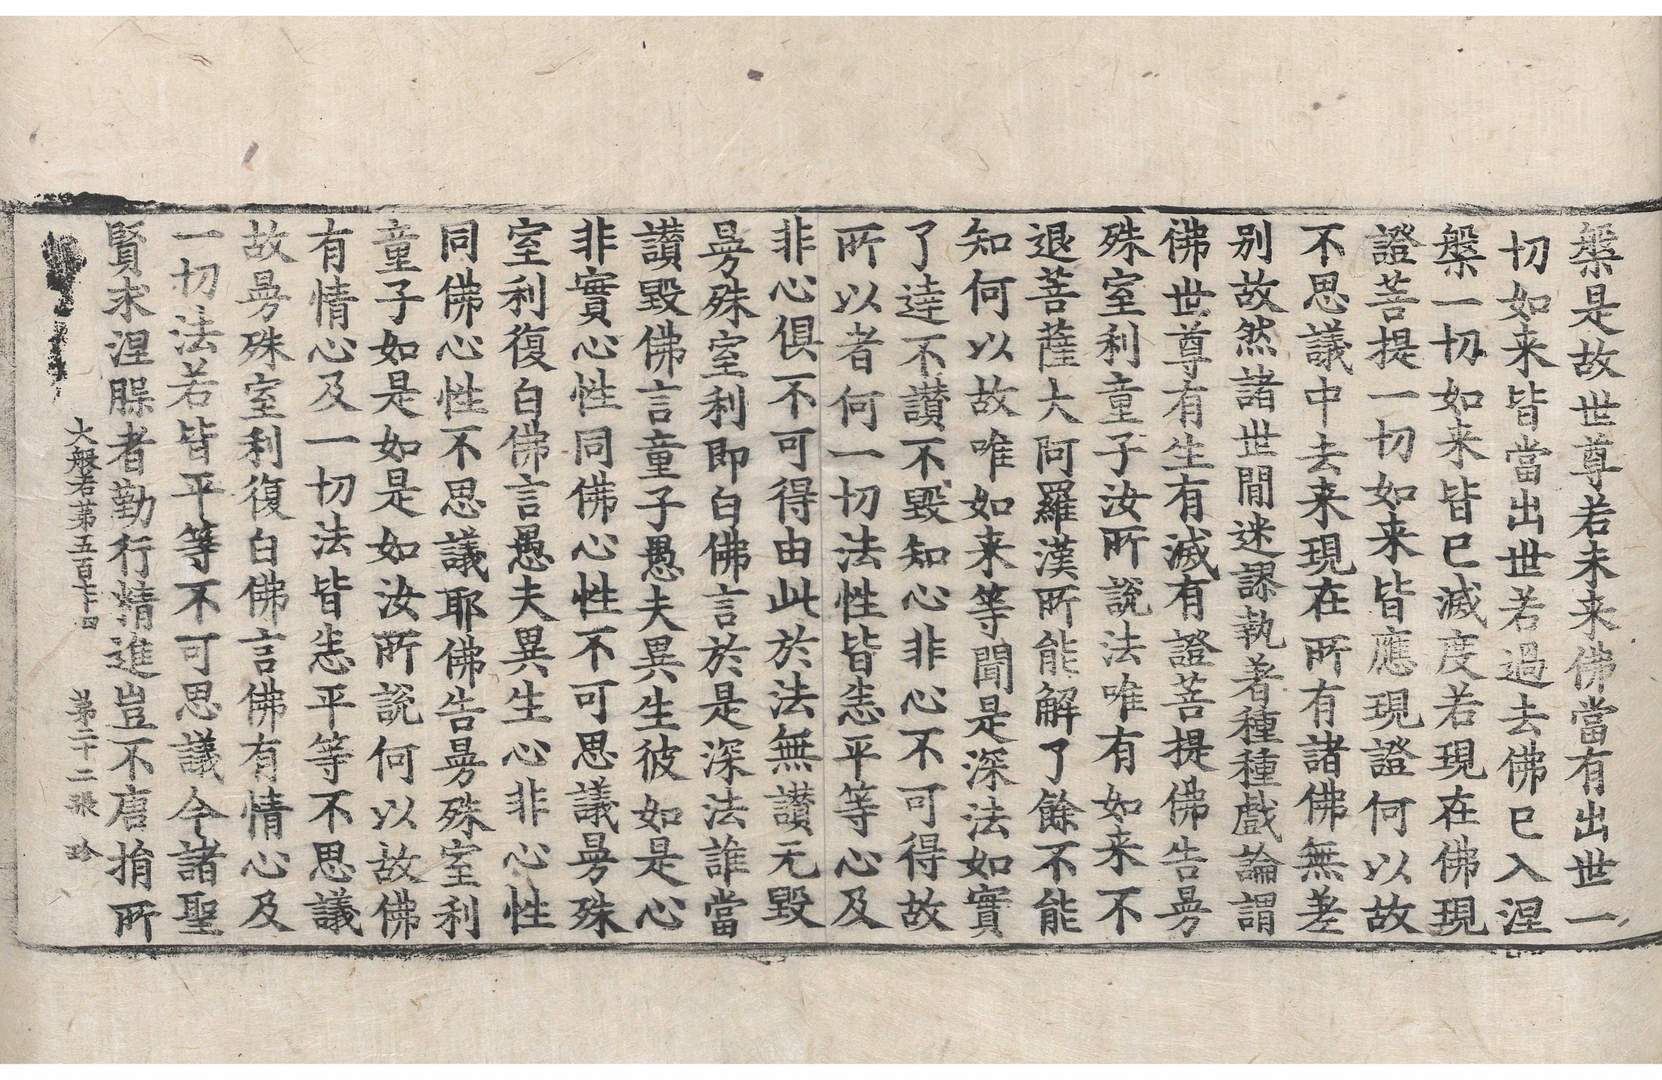 槃是故世尊若未来佛當有出世一
切如来皆當出世若過去佛已入涅
槃一切如来皆已滅度若現在佛現
證菩提一切如来皆應現證何以故
不思議中去来現在所有諸佛無差
别故然諸世間迷謬執著種種戲論謂
佛世尊有生有滅有證菩提佛告曼
殊室利童子汝所說法唯有如来不
退菩薩大阿羅漢所能解了餘不能
知何以故唯如来等聞是深法如實
了達不讃不毀知心非心不可得故
所以者何一切法性皆悉平等心及
非心俱不可得由此於法無讃无毀
曼殊室利即白佛言於是深法誰當
讃毀佛言童子愚夫異生彼如是心
非實心性同佛心性不可思議曼殊
室利復白佛言愚夫異生心非心性
同佛心性不思議耶佛告曼殊室利
童子如是如是如汝所說何以故佛
有情心及一切法皆悉平等不思議
故曼殊室利復白佛言佛有情心及
一切法若皆平等不可思議今諸聖
賢求涅槃者勤行精進豈不唐捐所
大般若第五百七十四 第二十二張 珍